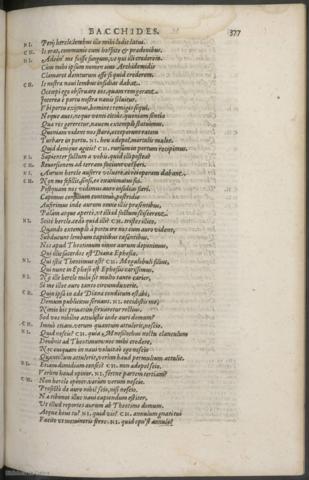 BACCHIDES. 377
NI. Perij hercle, lembus ille mihi lædit latus.
CH. Is erat communis cum hospite & prædonibus.
NI. Adeon' me fuisse fungum, ut qui illi crederem,
Cum mihi ipsum nomen eius Archidemidis
Clamaret dempturum esse si quid crederem.
CH. Is nostræ navi lembus insidias dabat.
Occœpi ego observare eos, quam rem gerant.
Interea è portu nostra navis solvitur.
Vbi portu eximus, homines remigio sequi,
Neque aves, neque venti citius. quoniam sentio
Quæ res gereretur, navem extemplo statuimus.
Quoniam vident nos stare, occœperunt ratem
Turbare in portu. NI. heu ædepol mortales malos.
Quid denique agitis? CH. rursum in portum recipimus.
NI. Sapienter factum à vobis. quid illi postea?
CH. Revorsionem ad terram faciunt vesperi.
NI. Aurum hercle auferre voluere. ei rei operam dabant.
CH. Non me fefellit, sensi, eo exanimatus fui.
Postquam nos videmus auro insidias fieri,
Capimus consilium continuo, postridie
Auferimus inde aurum omne illis præsentibus,
Palam atque aperte, ut illud factum sciscerent.
NI. Scite hercle. cedo quid illi? CH. tristes ilico,
Quando extemplo à portu ire nos cum auro vident,
Subducunt lembum capitibus cassantibus.
Nos apud Theotimum omne aurum deposuimus,
Qui illic sacerdos est Dianæ Ephesiæ.
NI. Quis istic Theotimus est? CH. Megalobuli filius,
Qui nunc in Epheso est Ephesiis carissimus.
NI. Næ ille hercle mihi sit multo tanto carior,
Si me illoc auro tanto circumduxerit.
CH. Quin ipsa in æde Dianæ conditum est, ibi,
Demum publicitus servant. NI. occidistis me,
Nimis hic privatim servaretur rectius.
Sed vos nihilne attulistis inde auri domum?
CH. Immo etiam. verum quantum attulerit, nescio.
NI. Quid nescis? CH. quia Mnesilochus noctu clanculum
Devenit ad Theotimum: nec mihi credere,
Nec cuiquam in navi voluit. eo ego nescio
Quantillum attulerit, verum haud permultum attulit.
NI. Etiam dimidium censes? CH. non ædepol scio,
Verum haud opinor. NI. fertne partem tertiam?
CH. Non hercle opinor. verum verum nescio.
Profecto de auro nihil scio, nisi nescio.
Nunc tibimet illuc navi capiundum est iter,
Vt illud reportes aurum ab Theotimo domum.
Atque heus tu? NI. quid vis? CH. annulum gnati tui
Facito ut memineris ferre. NI. quid opu'st annulo?